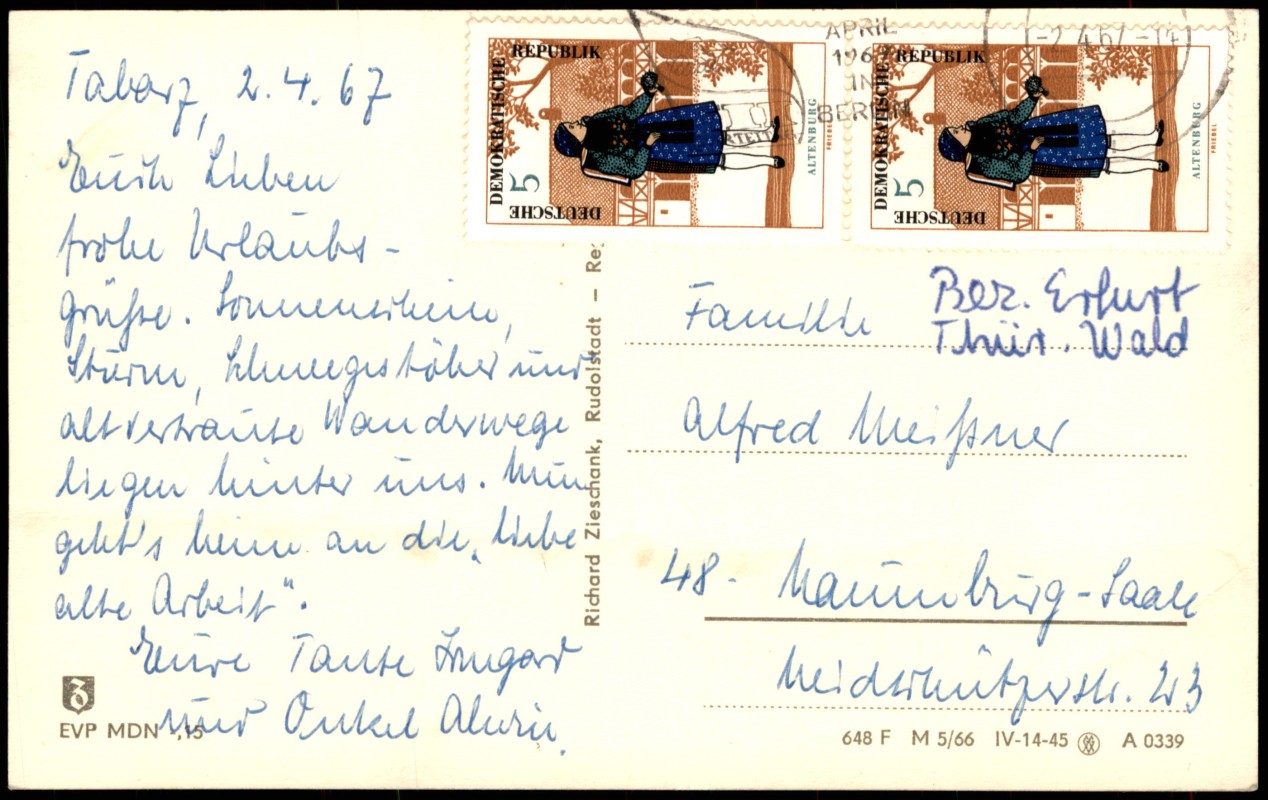 Tabarz, 2.4.67
Euch Lieben
frohe Urlaubs-
grüße. Sonnenschein,
Sturm, Schneegestöber und
altvertraute Wanderwege
liegen hinter uns. Nun
geht's heim an die „liebe
alte Arbeit".
Eure Tante Irmgard
und Onkel Alwin.
EVP MDN -,15
Richard Zieschank, Rudolstadt – Re
DEUTSCHE
DEMOKRATISCHE
REPUBLIK
5
ALTENBURG
FRIEBEL
DEUTSCHE
DEMOKRATISCHE
REPUBLIK
5
ALTENBURG
FRIEBEL
APRIL
1967
IN
BERLIN
-2.4.67-14
Bez. Erfurt
Thür. Wald
Familie
Alfred Meißner
48- Naumburg-Saale
Neidschützerstr. 23
648 F M 5/66 IV-14-45 A 0339